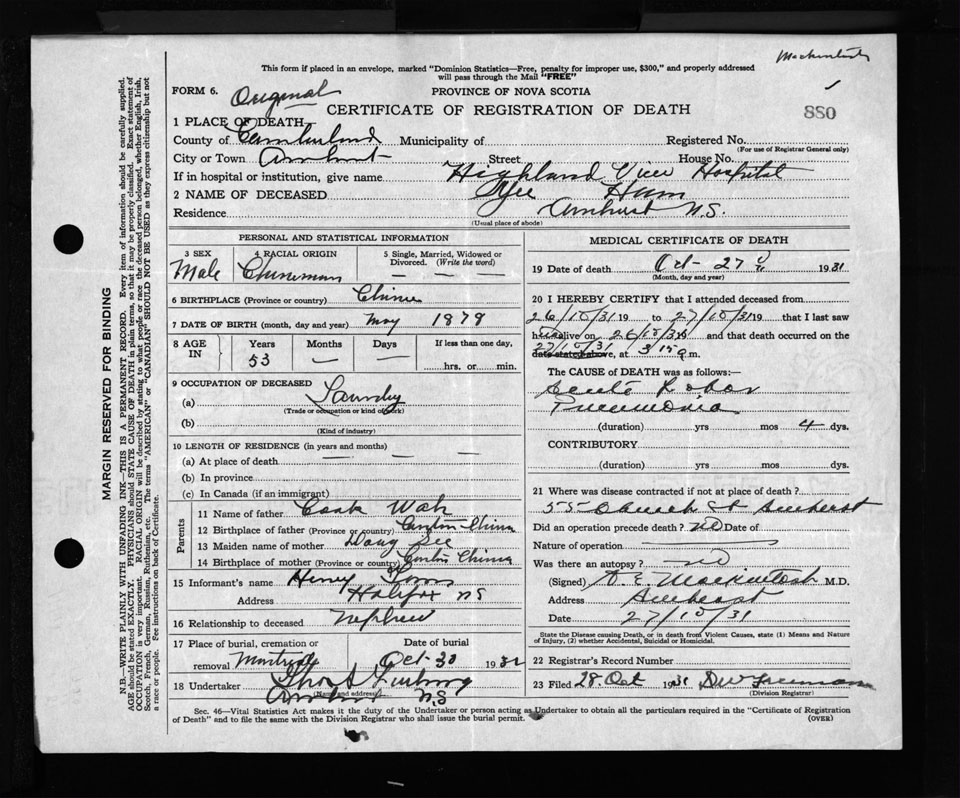 Mackintosh
This form if placed in an envelope, marked "Dominion Statistics—Free, penalty for improper use, $300," and properly addressed
will pass through the Mail "FREE"
FORM 6. Original PROVINCE OF NOVA SCOTIA
CERTIFICATE OF REGISTRATION OF DEATH 880
1 PLACE OF DEATH
County of Cumberland Municipality of Registered No.
(For use of Registrar General only)
City or Town Amherst Street House No.
If in hospital or institution, give name Highland View Hospital
2 NAME OF DECEASED Yee Hum
Residence Amherst N.S.
(Usual place of abode)
MARGIN RESERVED FOR BINDING
N.B.—WRITE PLAINLY WITH UNFADING INK—THIS IS A PERMANENT RECORD. Every item of information should be carefully supplied.
AGE should be stated EXACTLY. PHYSICIANS should STATE CAUSE OF DEATH in plain terms, so that it may be properly classified. Exact statement of
OCCUPATION is very important. RACIAL ORIGIN will be described by stating to what people or race the deceased person belonged, whether English, Irish,
Scotch, French, German, Russian, Ruthenian, etc. The terms "AMERICAN" or "CANADIAN" SHOULD NOT BE USED as they express citizenship but not
a race or people. See instructions on back of Certificate.
PERSONAL AND STATISTICAL INFORMATION
3 SEX 4 RACIAL ORIGIN 5 Single, Married, Widowed or
Divorced. (Write the word)
Male Chinaman — — — —
6 BIRTHPLACE (Province or country) China
7 DATE OF BIRTH (month, day and year) May 1878
8 AGE IN Years Months Days If less than one day,
53 — — hrs. or min.
9 OCCUPATION OF DECEASED
(a) Laundry
(Trade or occupation or kind of work)
(b)
(Kind of industry)
10 LENGTH OF RESIDENCE (in years and months)
(a) At place of death — — —
(b) In province
(c) In Canada (if an immigrant)
Parents
11 Name of father Wah
12 Birthplace of father (Province or country) Canton China
13 Maiden name of mother
14 Birthplace of mother (Province or country) Canton China
15 Informant's name Henry
Address Halifax NS
16 Relationship to deceased Nephew
17 Place of burial, cremation or Date of burial
removal Montreal Oct 30 1931
18 Undertaker
(Name and address)
Amherst N.S
MEDICAL CERTIFICATE OF DEATH
19 Date of death Oct— 27 1931
(Month, day and year)
20 I HEREBY CERTIFY that I attended deceased from
26/10/31 19 to 27/10/31 19 that I last saw
him alive on 26/10/31 19 and that death occurred on the
27/10/31
date stated above, at 3 15 a m.
The CAUSE of DEATH was as follows:—
Acute Lobar
Pneumonia
(duration) yrs mos 4 dys.
CONTRIBUTORY
(duration) yrs mos dys.
21 Where was disease contracted if not at place of death?
55 Church St Amherst
Did an operation precede death? no Date of
Nature of operation
Was there an autopsy? no
(Signed) A. E. Mackintosh M.D.
Address Amherst
Date 27/10/31
State the Disease causing Death, or in death from Violent Causes, state (1) Means and Nature
of Injury, (2) whether Accidental, Suicidal or Homicidal.
22 Registrar's Record Number
23 Filed 28 Oct 1931 Freeman
(Division Registrar)
Sec. 46—Vital Statistics Act makes it the duty of the Undertaker or person acting as Undertaker to obtain all the particulars required in the "Certificate of Registration
of Death" and to file the same with the Division Registrar who shall issue the burial permit. (OVER)